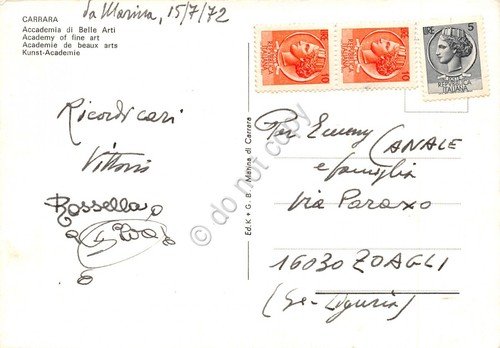 da Marina, 15/7/72
CARRARA
Accademia di Belle Arti
Academy of fine art
Academie de beaux arts
Kunst-Academie
Ricordi cari
Vittorio
Rossella
Ed. K + G. B. Marina di Carrara
10
10
LIRE 5
REPUBBLICA
ITALIANA
Per Emmy CANALE
e famiglia
Via Paraxo
16030 ZOAGLI
(Ge-Liguria)
do not copy